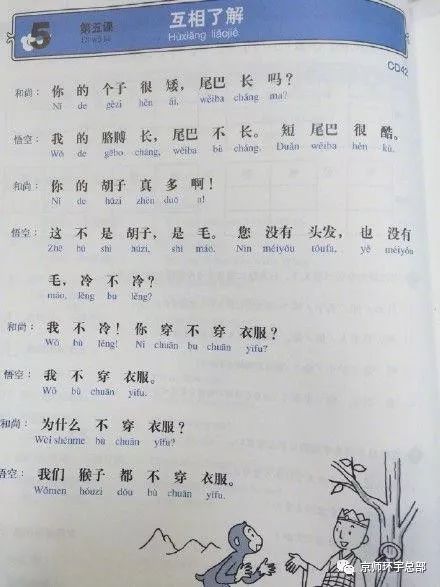 5 第五课 互相了解
Dì wǔ kè Hùxiāng liǎojiě
CD42
和尚： 你 的 个子 很 矮，尾巴 长 吗？
Nǐ de gèzi hěn ǎi, wěiba cháng ma?
悟空： 我 的 胳膊 长，尾巴 不 长。 短 尾巴 很 酷。
Wǒ de gēbo cháng, wěiba bù cháng. Duǎn wěiba hěn kù.
和尚： 你 的 胡子 真 多 啊！
Nǐ de húzi zhēn duō a!
悟空： 这 不 是 胡子，是 毛。 您 没有 头发，也 没有
Zhè bú shì húzi, shì máo. Nín méiyǒu tóufa, yě méiyǒu
毛，冷 不 冷？
máo, lěng bu lěng?
和尚： 我 不 冷！ 你 穿 不 穿 衣服？
Wǒ bù lěng! Nǐ chuān bu chuān yīfu?
悟空： 我 不 穿 衣服。
Wǒ bù chuān yīfu.
和尚： 为什么 不 穿 衣服？
Wèi shénme bù chuān yīfu?
悟空： 我们 猴子 都 不 穿 衣服。
Wǒmen hóuzi dōu bù chuān yīfu.
京师环宇总部